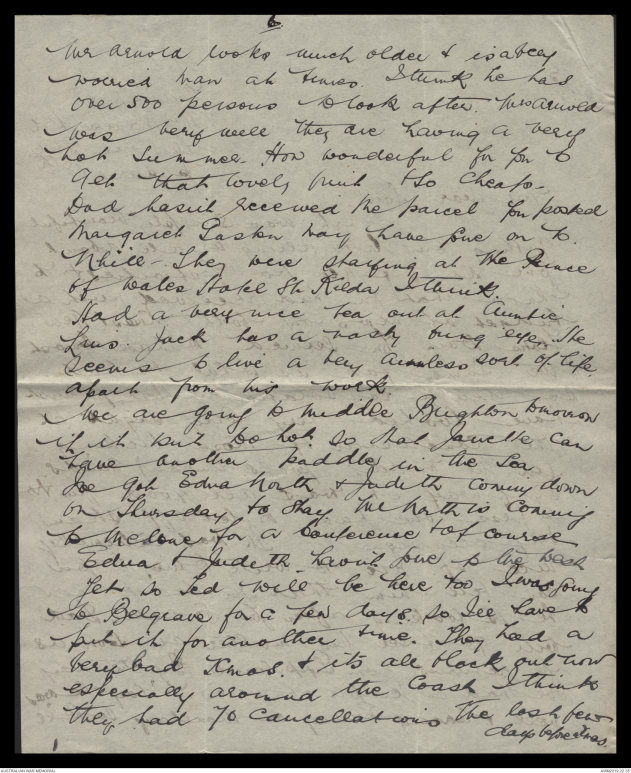 6
Mr Arnold looks much older & is a very
worried man at times. I think he has
over 500 persons to look after. Mrs Arnold
was very well they are having a very
hot Summer. How wonderful for you to
get that lovely fruit & so cheap.
Dad hasn't received the parcel you posted
Margaret may have gone on to
Nhill - They were staying at the Prince
of Wales Hotel St Kilda I think.
Had a very nice tea out at Auntie
Lins. Jack has a nasty bung eye. He
seems to live a very aimless sort of life
apart from his work.
We are going to middle Brighton tomorrow
if it isn't too hot so that Janette can
have another paddle in the Sea
I've got Edna North & Judith coming down
on Thursday to stay. Mr North is coming
to Melbne for a Conference & of course
Edna & Judith haven't gone up the
yet so Ted will be here too I was going
to Belgrave for a few days so I'll have to
put it for another time. They had a
very bad Xmas. & it's all block out now
especially around the Coast I think
they had 70 cancellations the last few
days before Xmas.
AUSTRALIAN WAR MEMORIAL